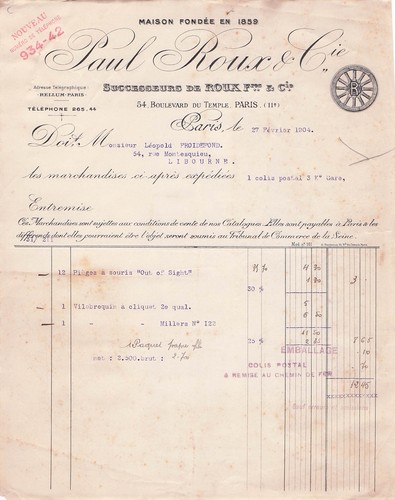 MAISON FONDÉE EN 1859
NOUVEAU
934-42
Paul Roux & Cie
SUCCESSEURS DE ROUX Fres & Cie
Adresse Télégraphique:
HELLUM-PARIS
54, BOULEVARD DU TEMPLE, PARIS. (11e)
TÉLÉPHONE 265.44
Paris, le 27 Février 1904.
Doit M onsieur Léopold FROIDEFOND,
54, rue Montesquieu,
LIBOURNE.
les marchandises ci-après expédiées 1 colis postal 3 K° Gare,
Entremise
Ces Marchandises sont sujettes aux conditions de vente de nos Catalogues. Elles sont payables à Paris & les
différends dont elles pourraient être l'objet seront soumis au Tribunal de Commerce de la Seine.
12 Pièges à souris "Out of Sight"
20 %
3
1 Vilebrequin à cliquet 2e qual. 5
1 - - Millers N° 122
25 %
EMBALLAGE
net: 2.500. brut:
COLIS POSTAL
A REMISE AU CHEMIN DE FER